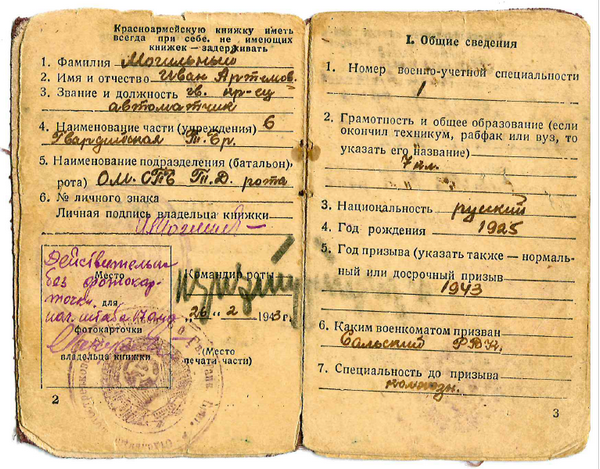 Красноармейскую книжку иметь
всегда при себе. не имеющих
книжек — задерживать
1. Фамилия Могильный
2. Имя и отчество Иван Артемов.
3. Звание и должность гв. кр-ец
автоматчик
4. Наименование части (учреждения) 6
Гвардейская Т. Бр.
5. Наименование подразделения (батальон)
рота) рота
6. № личного знака
Личная подпись владельца книжки
Действительна
без фотокар-
точки.
Место
для
нач. штаба
фотокарточки
владельца книжки
Командир роты
„26“ 2 1943 г.
(Место
печати части)
2
I. Общие сведения
1. Номер военно-учетной специальности
1
2. Грамотность и общее образование (если
окончил техникум, рабфак или вуз, то
указать его название)
7 кл.
3. Национальность русский
4. Год рождения 1925
5. Год призыва (указать также — нормаль-
ный или досрочный призыв
1943
6. Каким военкоматом призван
Сальский РВК.
7. Специальность до призыва
колхозн.
3